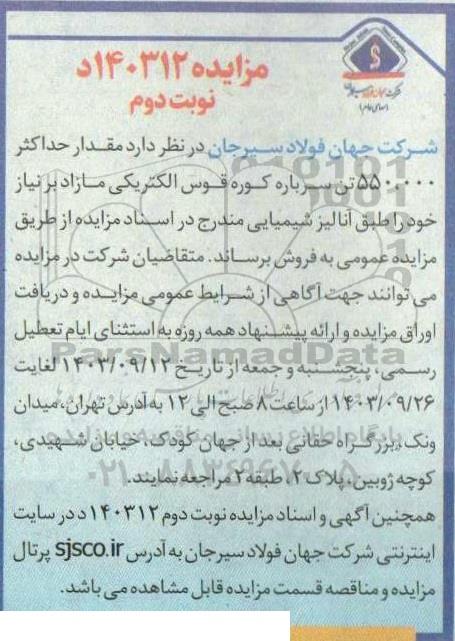 شرکت جهان فولاد سیرجان
(سهامی عام)
مزایده ۱۴۰۳۱۲د
نوبت دوم
شرکت جهان فولاد سیرجان در نظر دارد مقدار حداکثر
۵۵۰,۰۰۰ تن سرباره کوره قوس الکتریکی مازاد بر نیاز
خود را طبق آنالیز شیمیایی مندرج در اسناد مزایده از طریق
مزایده عمومی به فروش برساند. متقاضیان شرکت در مزایده
می توانند جهت آگاهی از شرایط عمومی مزایده و دریافت
اوراق مزایده و ارائه پیشنهاد همه روزه به استثنای ایام تعطیل
رسمی، پنجشنبه و جمعه از تاریخ ۱۴۰۳/۰۹/۱۲ لغایت
۱۴۰۳/۰۹/۲۶ از ساعت ۸ صبح الی ۱۲ به آدرس تهران، میدان
ونک، بزرگراه حقانی بعد از جهان کودک، خیابان شهیدی،
کوچه ژوبین، پلاک ۲، طبقه ۲ مراجعه نمایند.
همچنین آگهی و اسناد مزایده نوبت دوم ۱۴۰۳۱۲د در سایت
اینترنتی شرکت جهان فولاد سیرجان به آدرس sjsco.ir پرتال
مزایده و مناقصه قسمت مزایده قابل مشاهده می باشد.
ParsNamadData